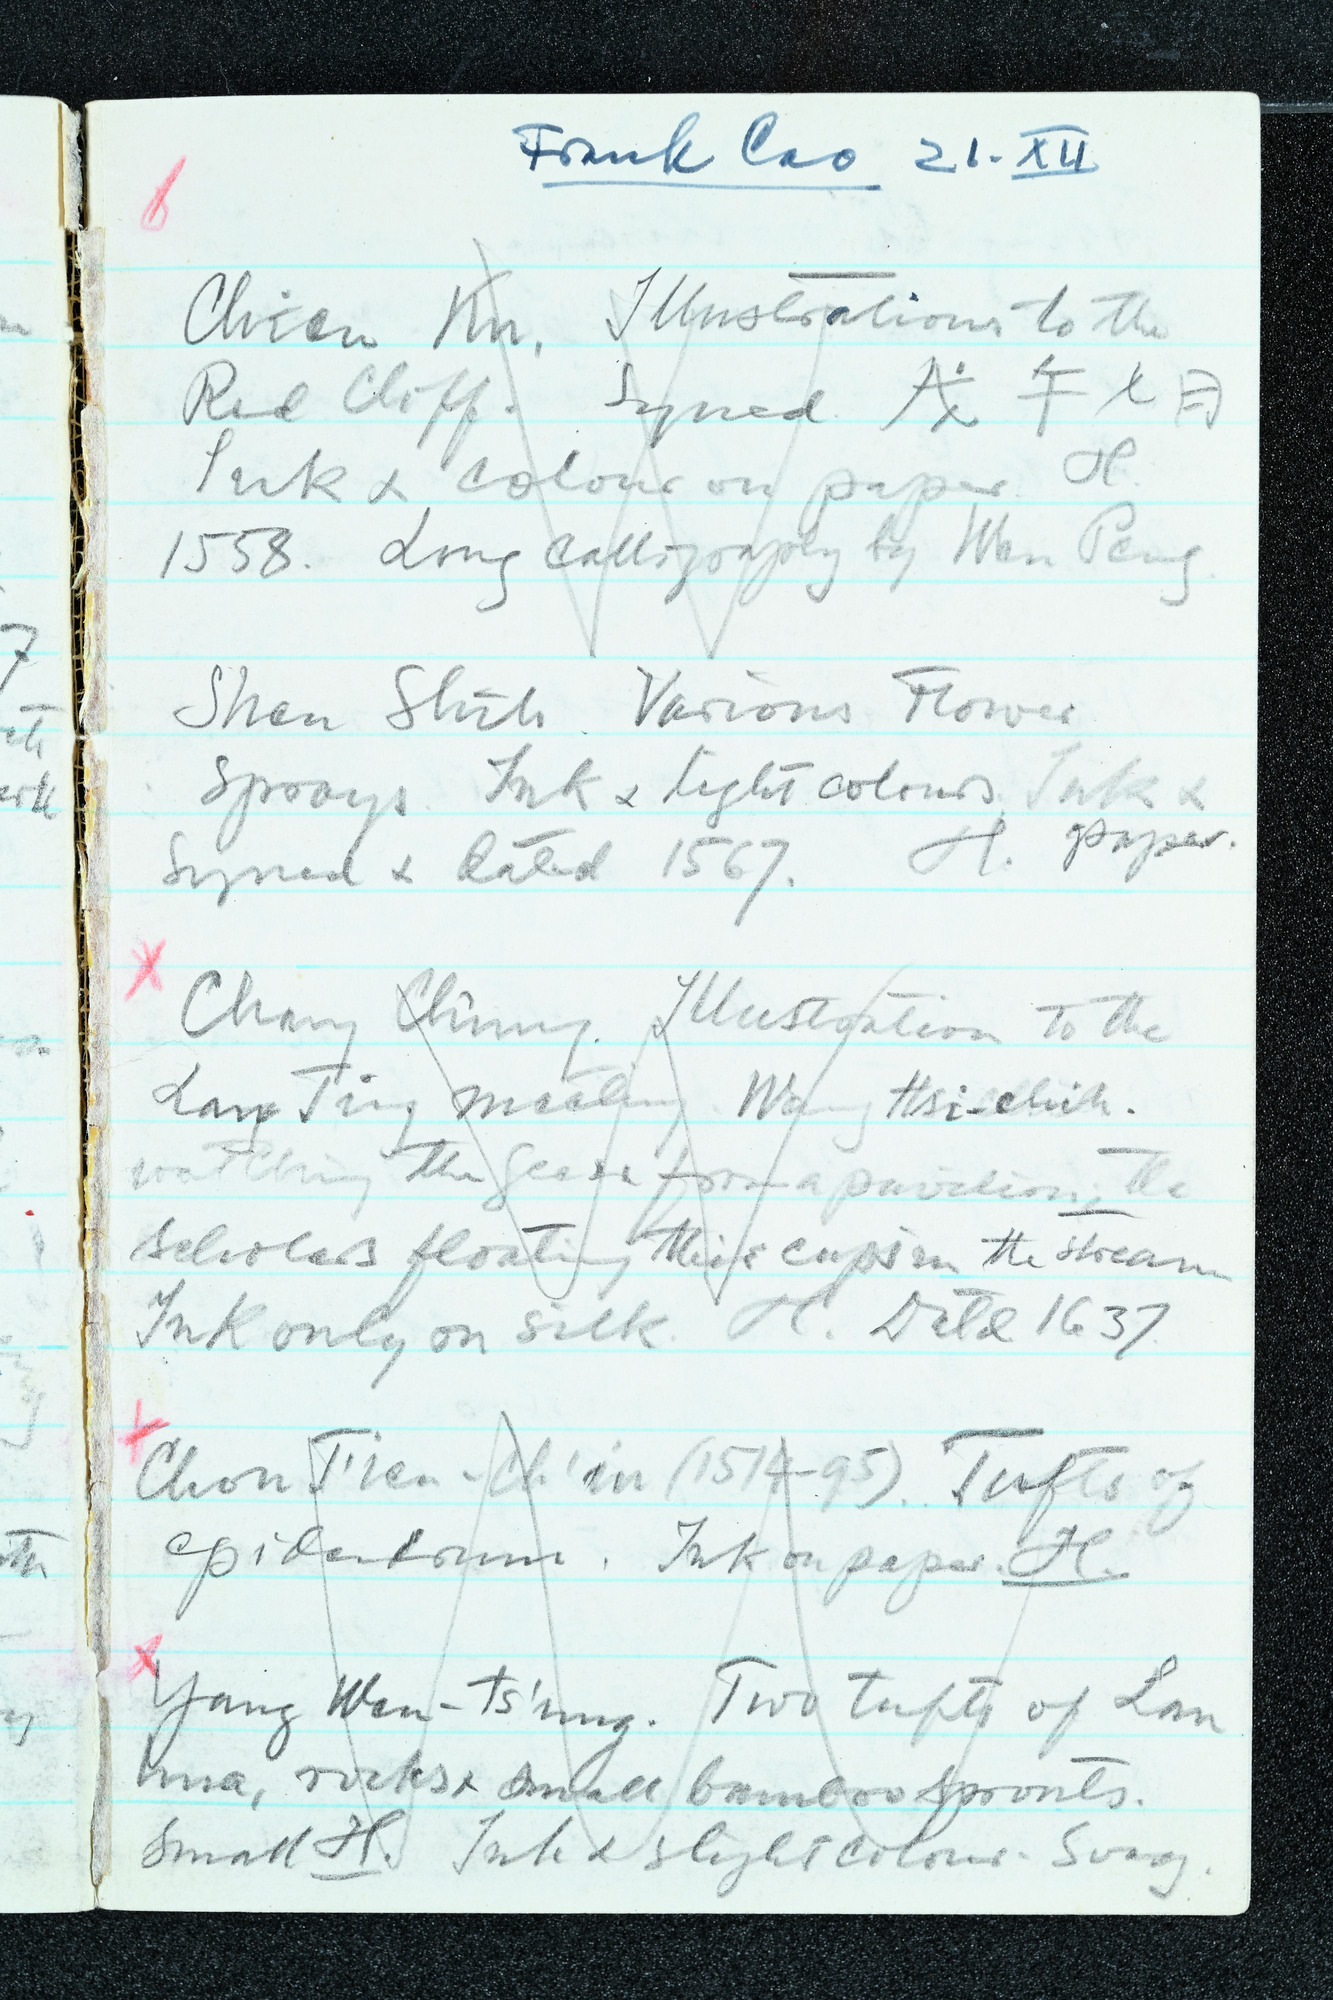 Frank Cao 21-XII
6
Chien Ku, Illustrations to the
Red Cliff. Signed
Ink & colour on paper. H.
1558. Long calligraphy by Wen Peng.
Shen Shih Various Flower
Sprays. Ink & light colours. Ink &
Signed & dated 1567. H. paper.
x
Chang Hung. Illustration to the
Lan Ting meeting. Wang Hsi-chih.
watching the geese from a pavilion, the
scholars floating their cups in the stream
Ink only on silk. H. Dated 1637.
x
Chou T'ien-Ch'iu (1514-95). Tufts of
epidendrum. Ink on paper. H.
x
Yang Wen-ts'ung. Two tufts of Lan
hua, rocks & small bamboo sprouts.
Small H. Ink & slight colour.